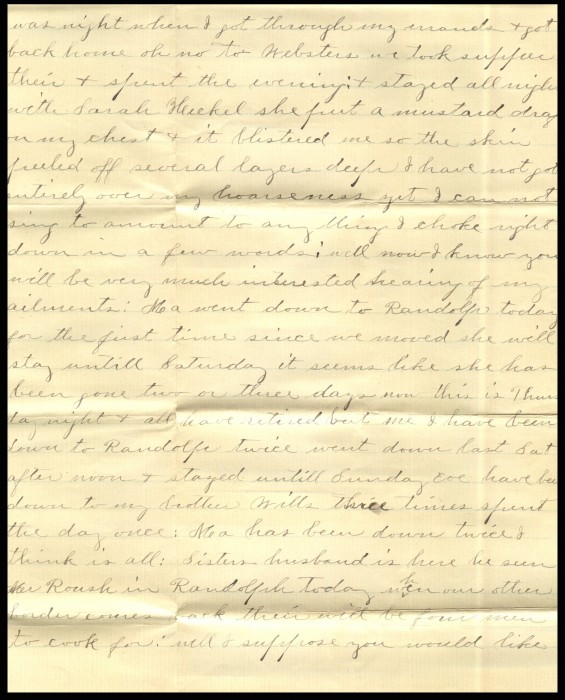 was night when I got through my errands & got
back home oh no to Websters we took supper
their & spent the evening & stayed all night
with Sarah Heckel she put a mustard drag
on my chest & it blistered me so the skin
peeled off several layers deep I have not got
entirely over my hoarseness yet I can not
sing to amount to any thing I choke right
down in a few words: well now I know you
will be very much interested hearing of my
ailments: Ma went down to Randolph today
for the first time since we moved she will
stay untill Saturday it seems like she has
been gone two or three days now this is Thurs
day night & all have retired but me I have been
down to Randolph twice went down last Sat
after noon & stayed untill Sunday Eve have be
down to my brother Wills three times spent
the day once: Ma has been down twice I
think is all: Sisters husband is here he seen
Mr Roush in Randolph today when our other
border comes back their will be four men
to cook for: well I suppose you would like